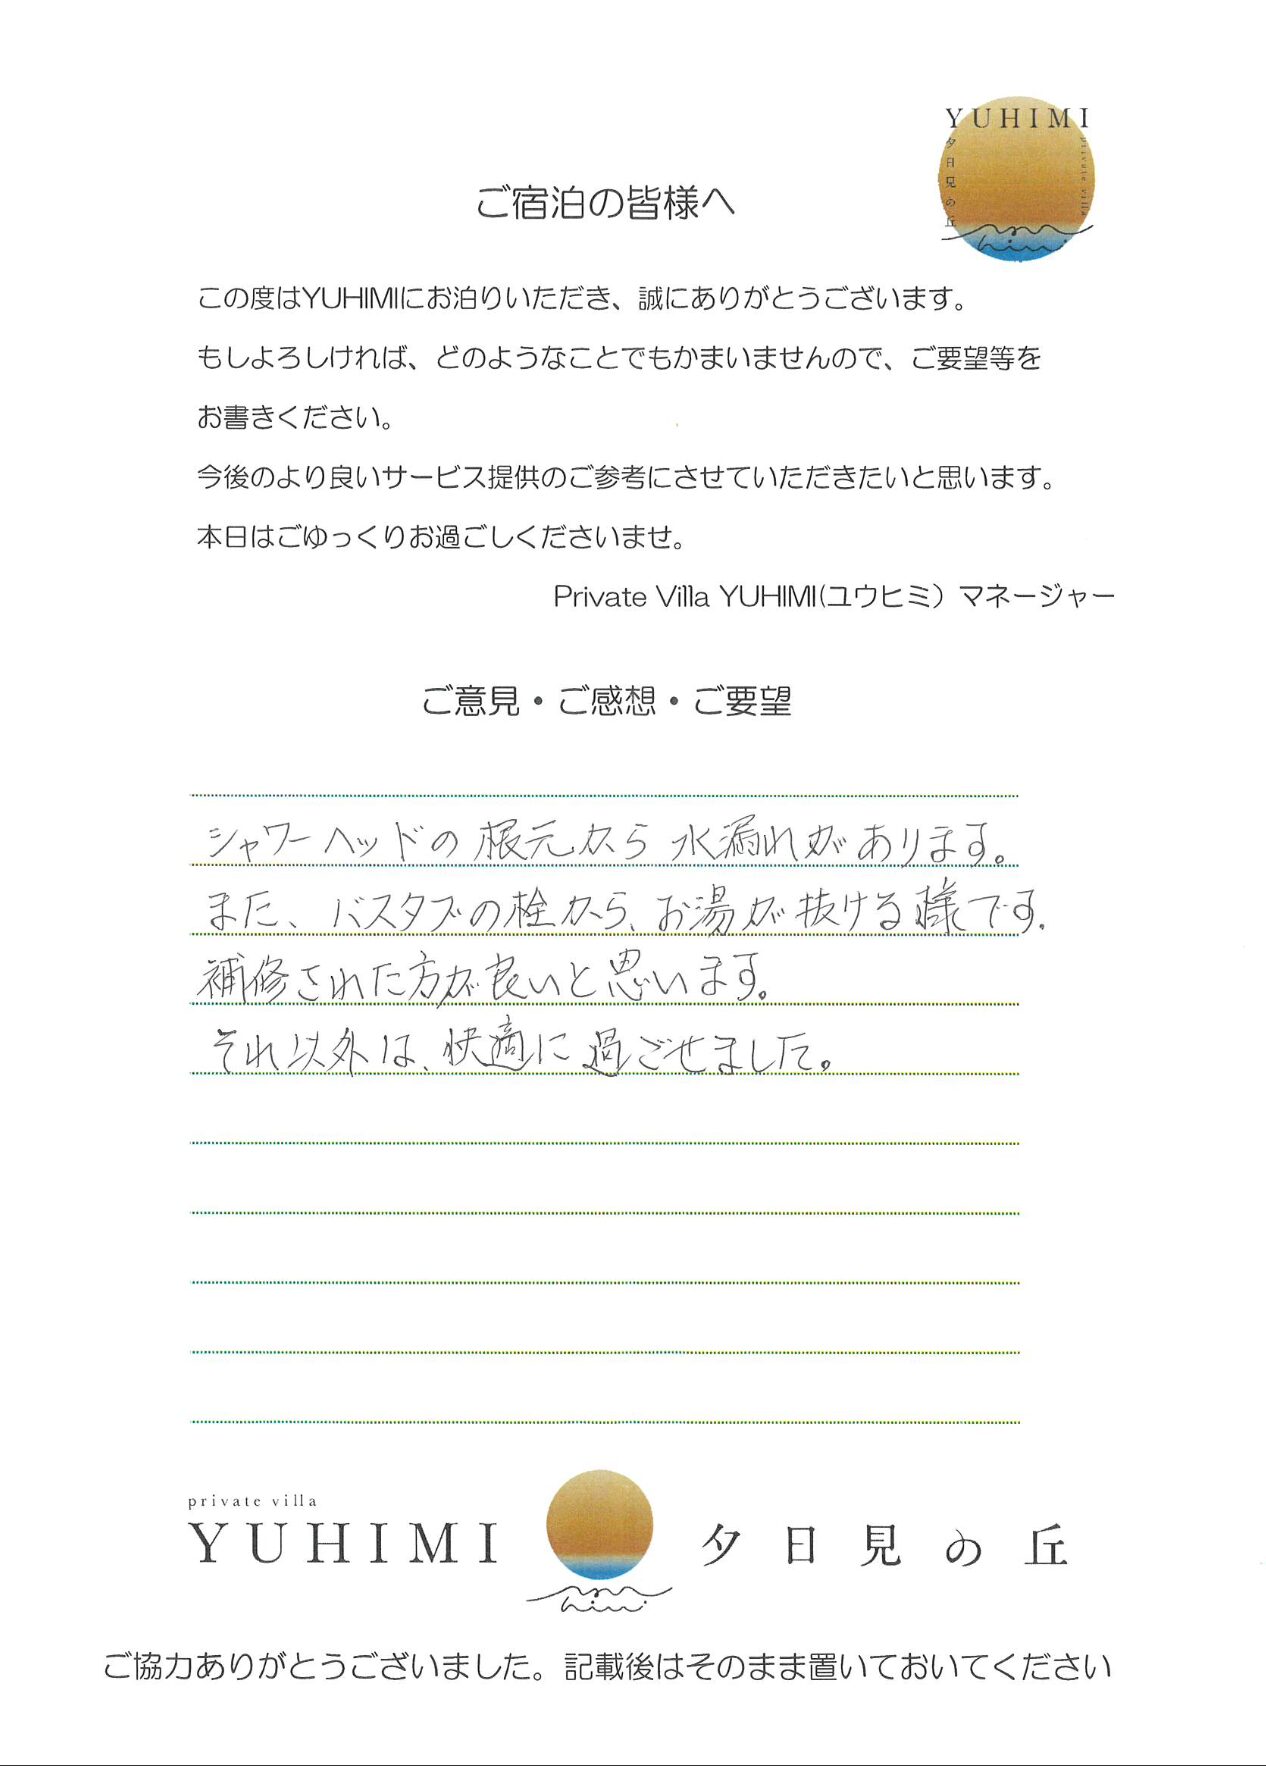 YUHIMI
夕日見の丘
private villa
ご宿泊の皆様へ
この度はYUHIMIにお泊りいただき、誠にありがとうございます。
もしよろしければ、どのようなことでもかまいませんので、ご要望等を
お書きください。
今後のより良いサービス提供のご参考にさせていただきたいと思います。
本日はごゆっくりお過ごしくださいませ。
Private Villa YUHIMI(ユウヒミ）マネージャー
ご意見・ご感想・ご要望
シャワーヘッドの根元から水漏れがあります。
また、バスタブの栓から、お湯が抜ける様です.
補修された方が良いと思います。
それ以外は、快適に過ごせました。
private villa
YUHIMI 夕日見の丘
ご協力ありがとうございました。記載後はそのまま置いておいてください